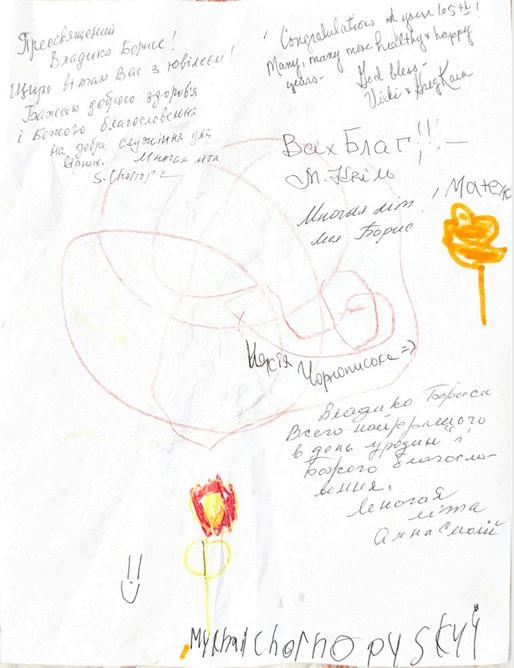 Преосвященний
Владико Борисе!
Щиро вітаю Вас з ювілеєм!
Бажаю доброго здоров'я
і Божого благословення
на добре служіння для
вірних. Многая літа
Congratulations on your 65th!
Many, many more healthy & happy
years-
God bless-
Vicki &
Всіх Благ!!!-
Многая літ
Борис
Чорнописка =)
Владико Бориса
Всего найкращого
в день уродин і
Божого благосло-
вення.
Многая
літа
Анна
Mykhailchornopyskyй